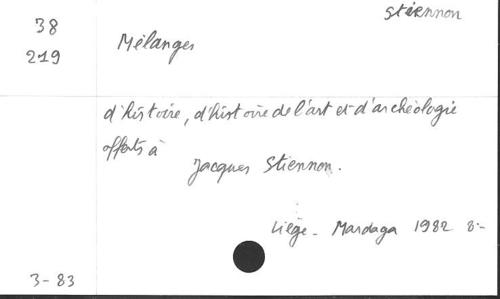 Stiennon
38
219
Mélanges
d'histoire, d'histoire de l'art et d'archéologie
offerts à
Jacques Stiennon.
Liège - Mardaga 1982 8:-
3-83